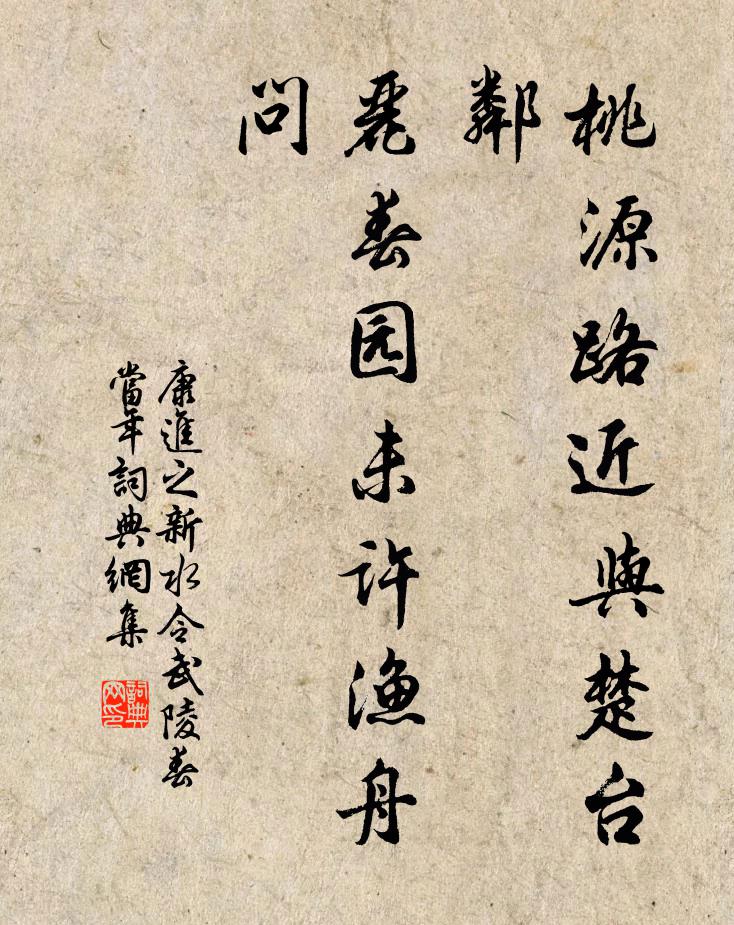 桃源路近與楚台
鄰
麗春园未许漁舟
問
康進之新水令武陵春
當年詞典網集
詞典
网印